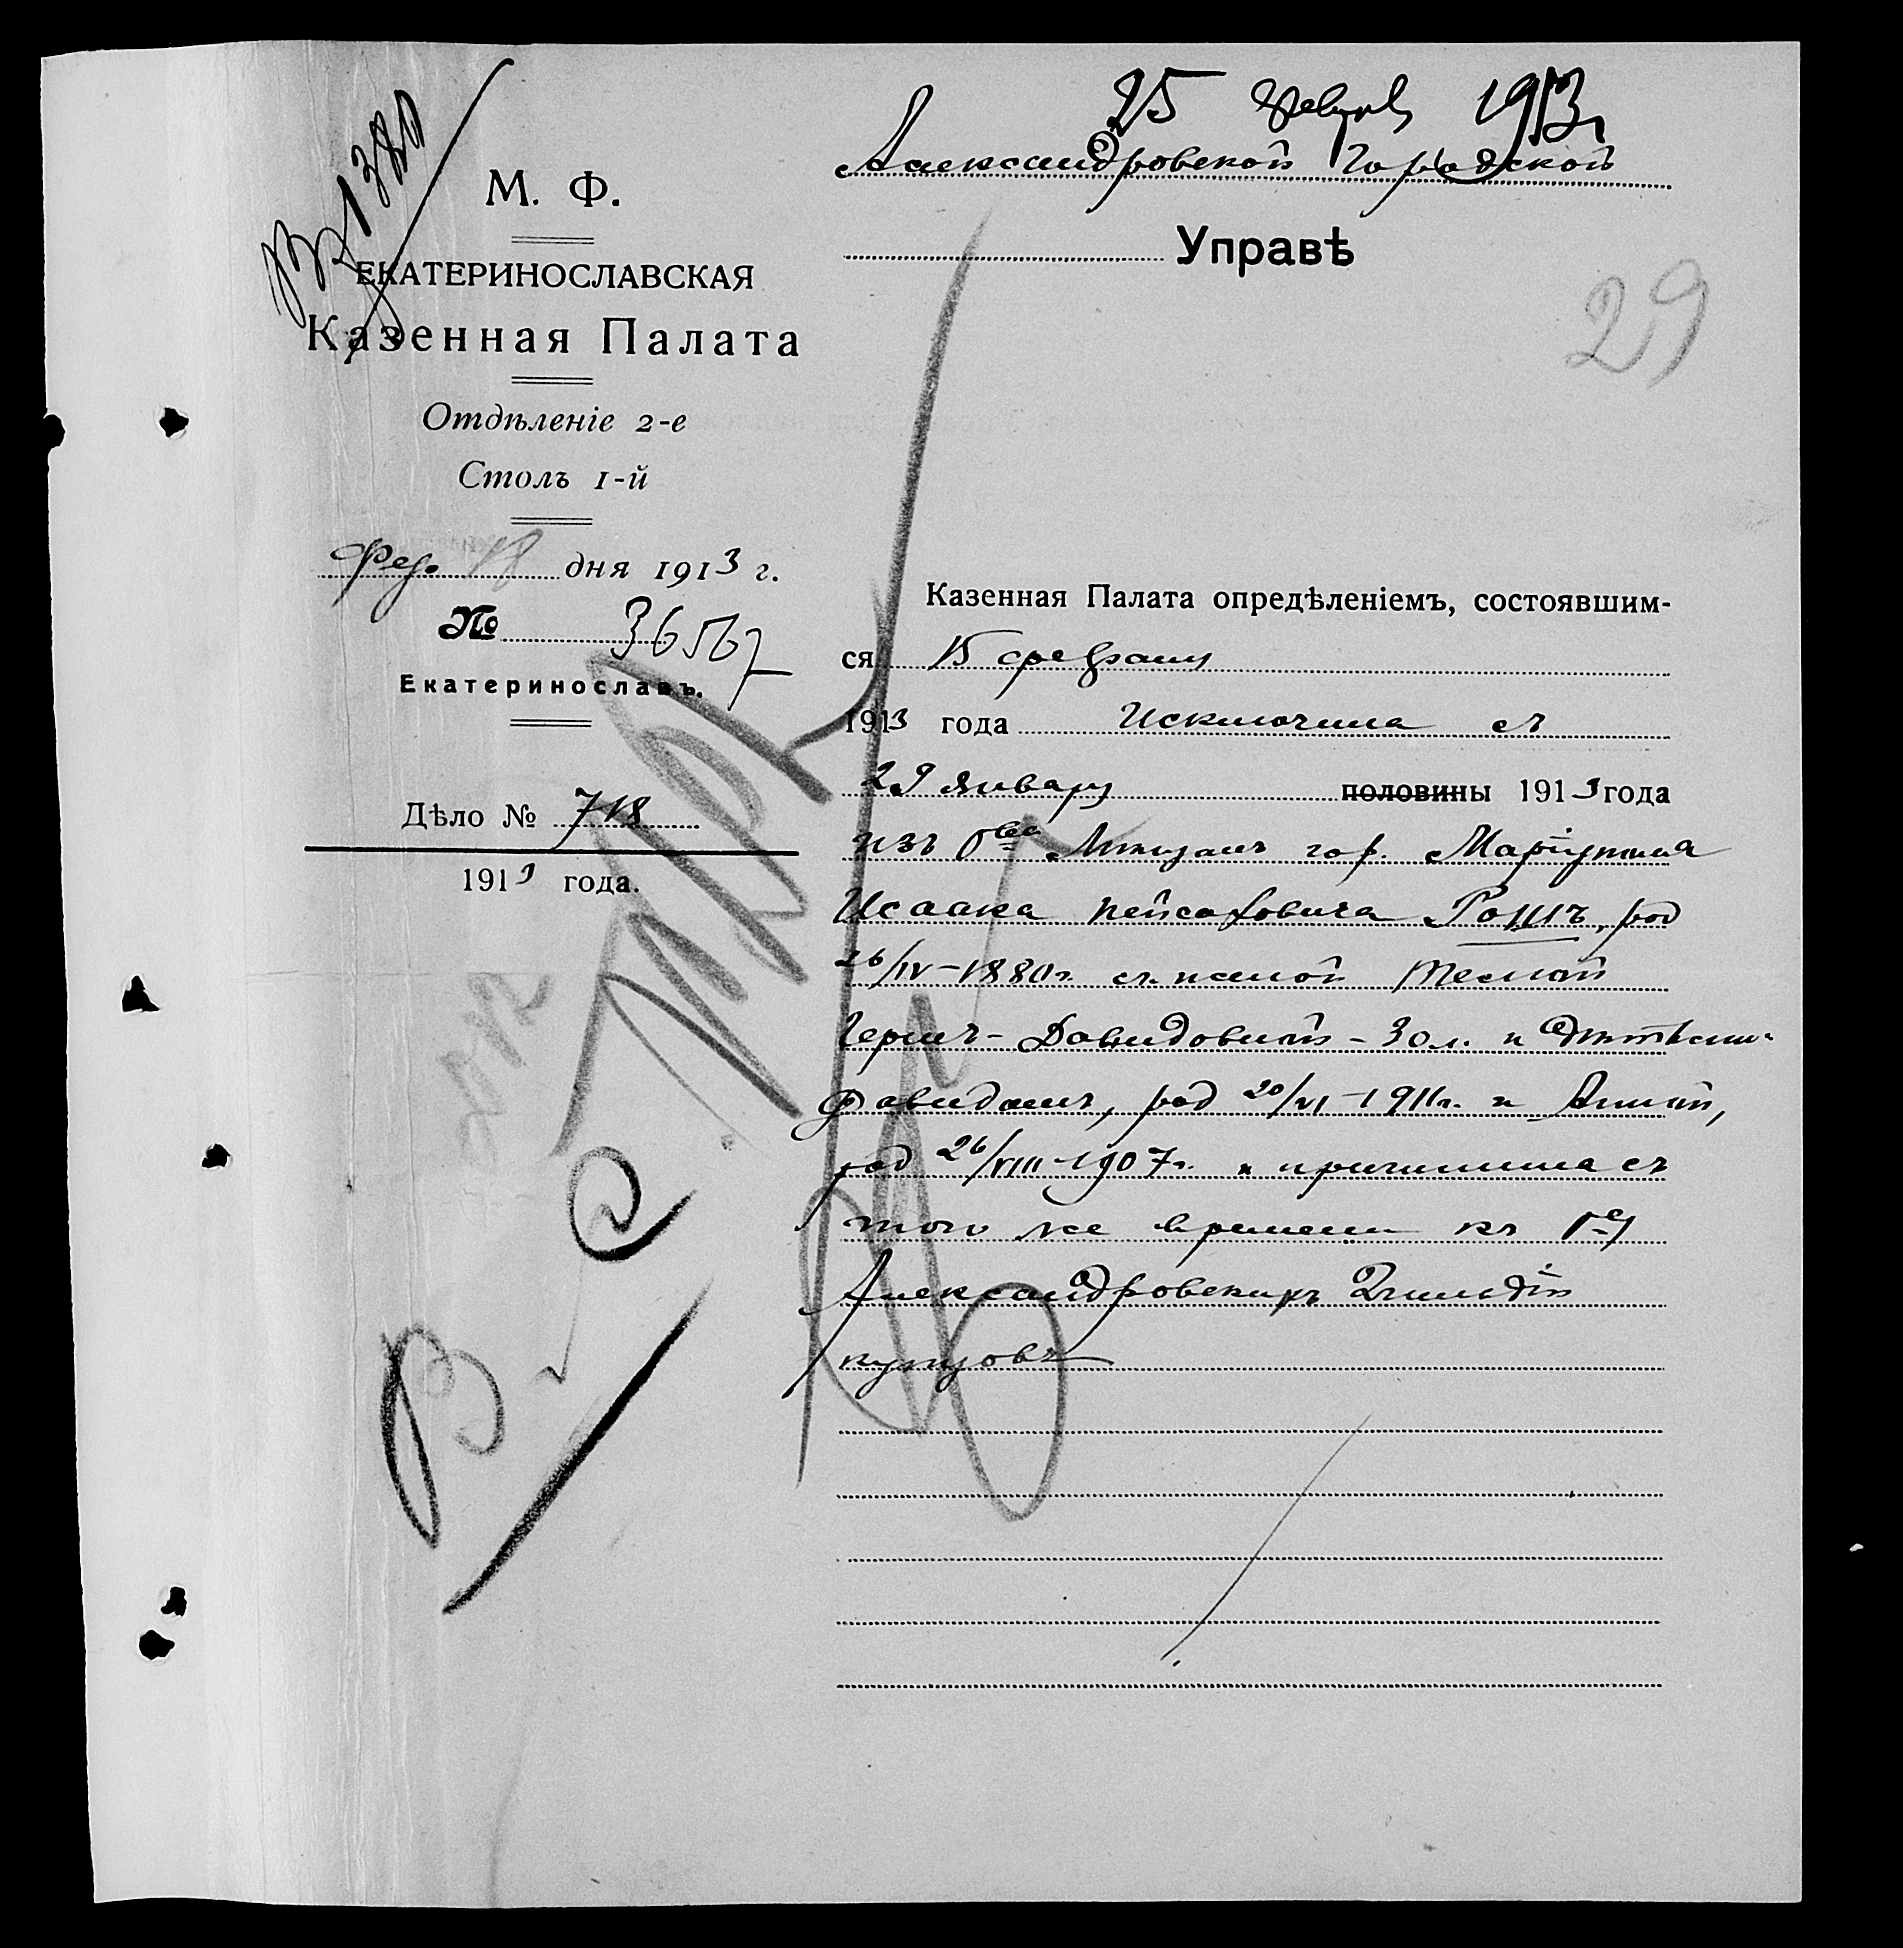 25 Февр 1913 г
Александровской Городской
Управѣ
29
Вх 1380
М. Ф.
ЕКАТЕРИНОСЛАВСКАЯ
Казенная Палата
Отдѣленіе 2-е
Столъ 1-й
Фев. 18 дня 1913 г.
№ 36567
Екатеринославъ.
Дѣло № 718
1913 года.
Казенная Палата опредѣленіемъ, состоявшим-
ся 15 февраля
1913 года Исключила съ
29 Января половины 1913 года
изъ Мѣщанъ гор. Маріуполя
Исаака Пейсаховича Рошъ, род
26/IV-1880 г. съ женой
Гершъ-Давидовной - 30 л. и дѣтьми
Давидомъ, род 20/VI-1911 г. и Анной,
род 26/VIII-1907 г. и причислила съ
того же времени къ
Александровскихъ 2 гильдіи
купцовъ